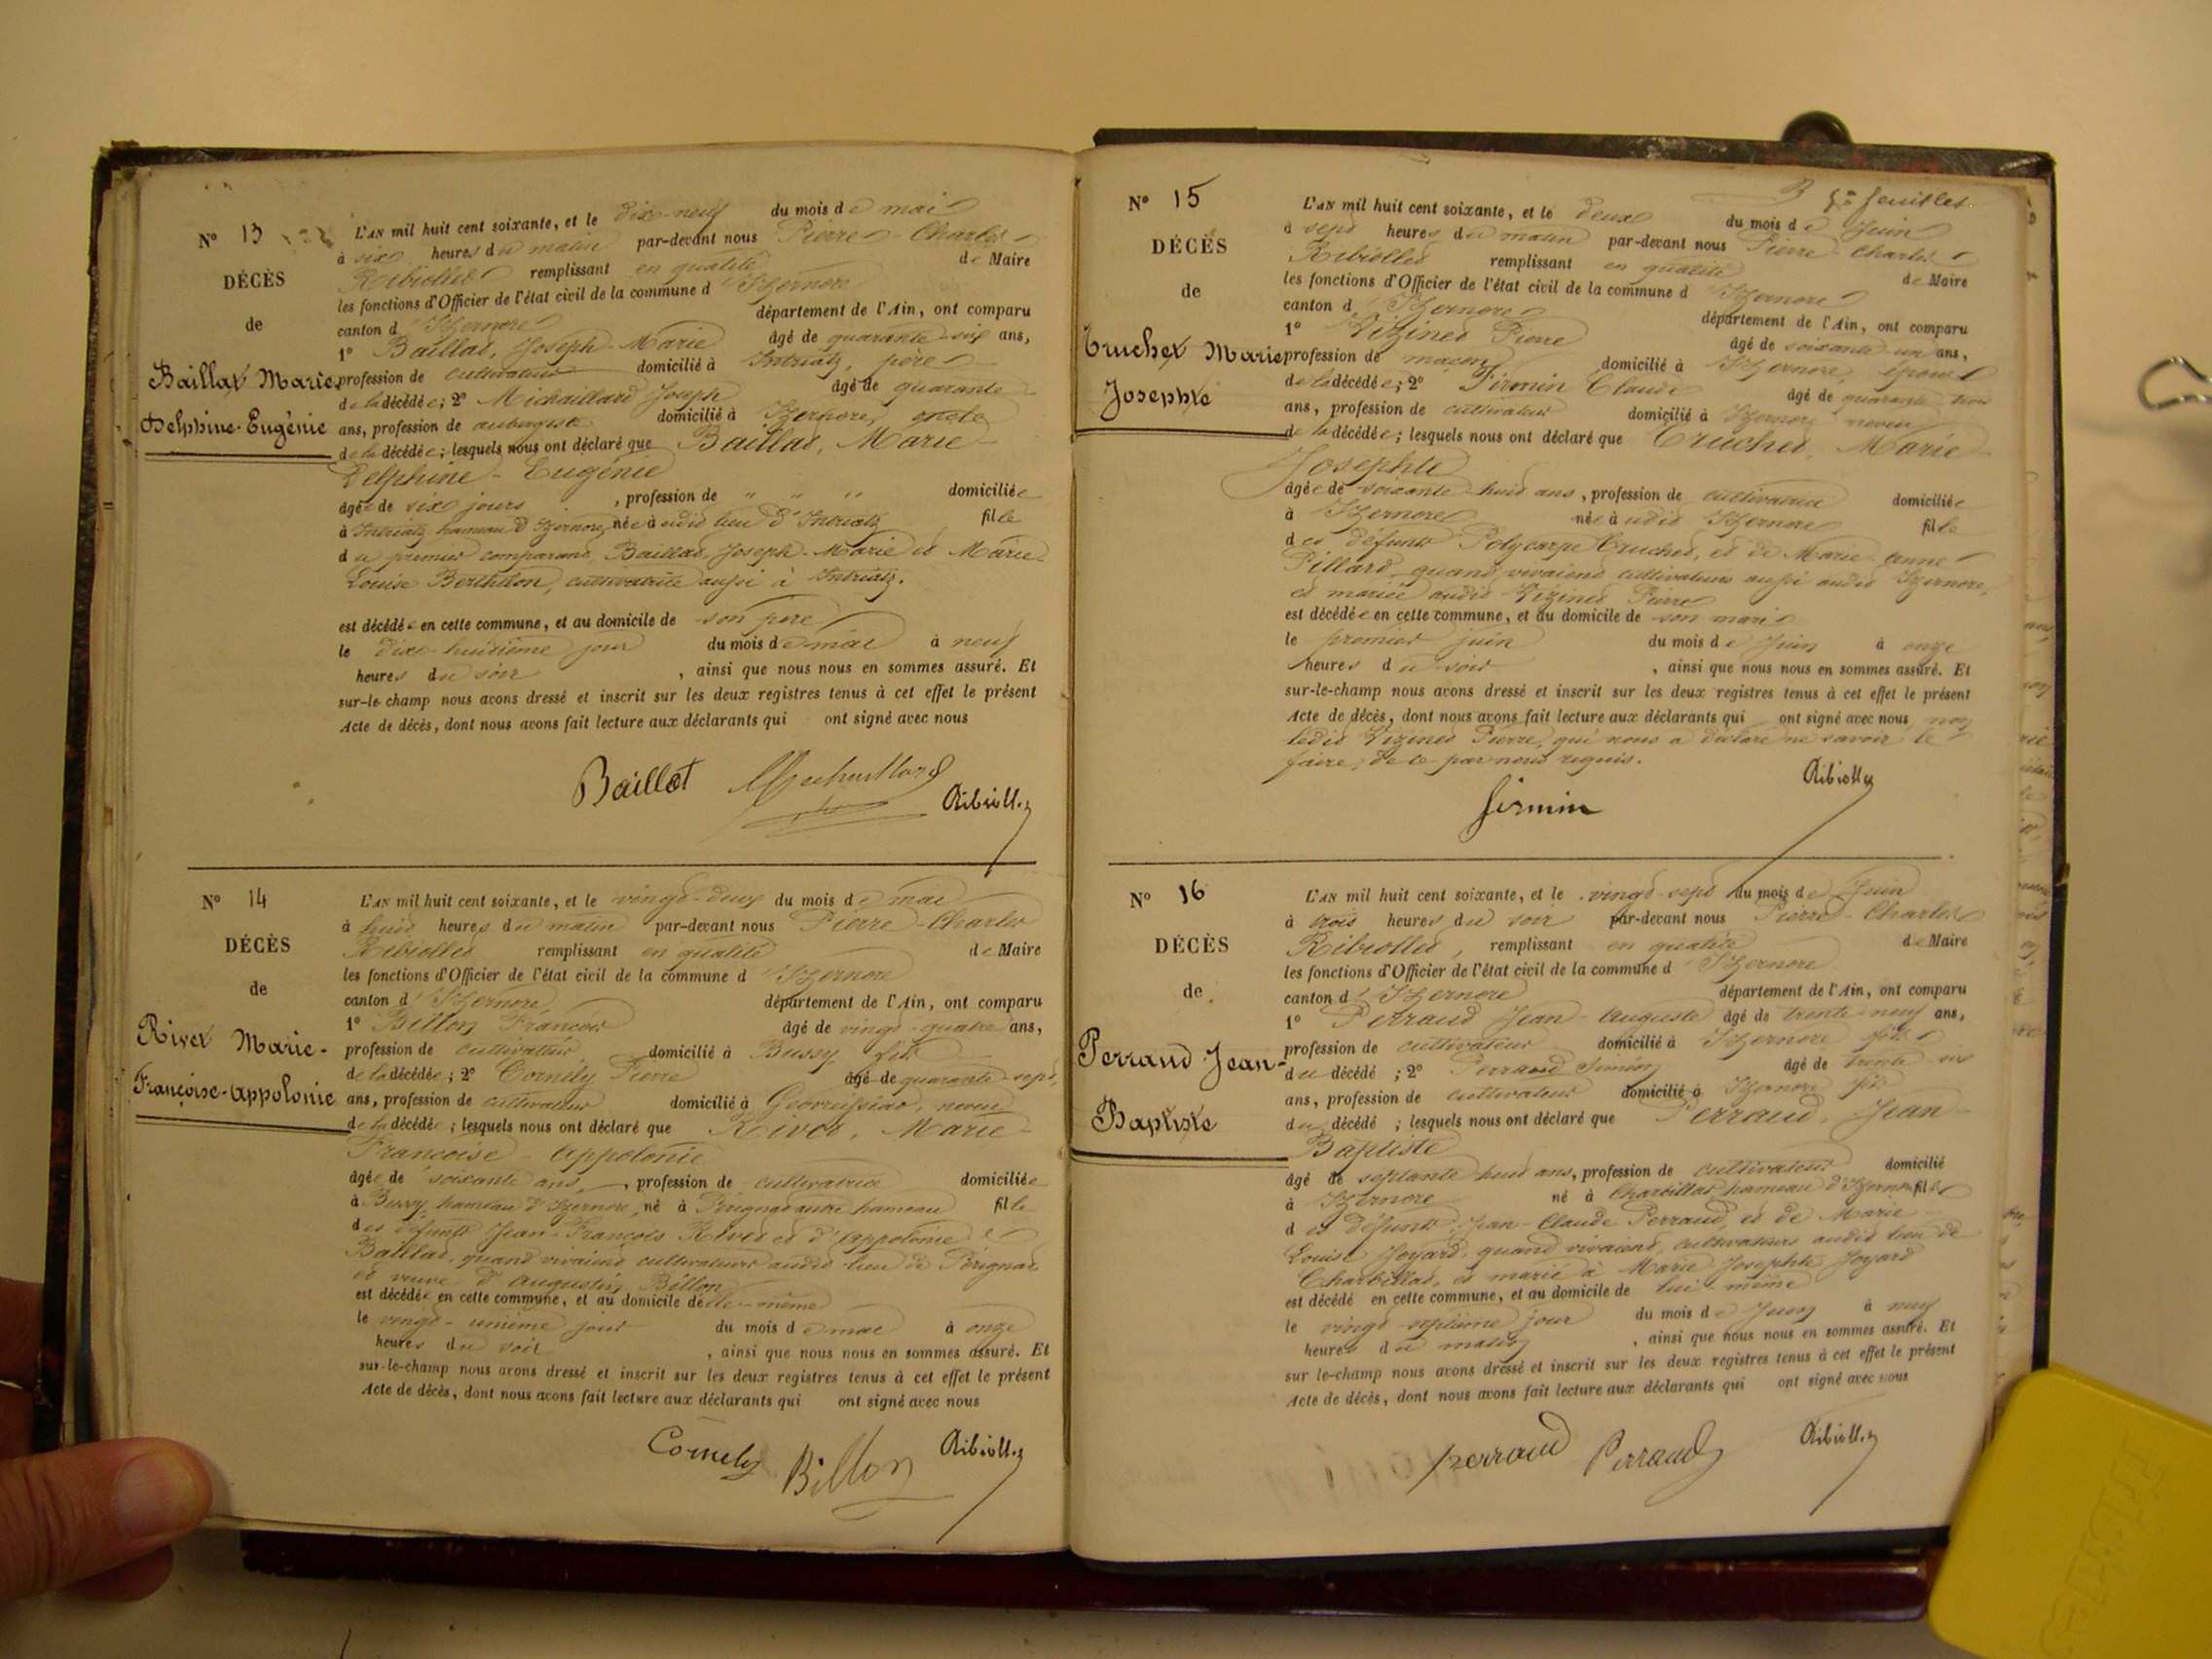 N° 13
DÉCÈS
de
Baillat Marie
Delphine-Eugénie
L'AN mil huit cent soixante, et le dix-neuf du mois de mai
à six heures du matin par-devant nous Pierre-Charles
Ribiollet remplissant en qualité de Maire
les fonctions d'Officier de l'état civil de la commune d'Izernore
canton d'Izernore département de l'Ain, ont comparu
1° Baillat, Joseph-Marie âgé de quarante-six ans,
profession de cultivateur domicilié à Intriatz, père
de la décédée; 2° Michaillard Joseph âgé de quarante
ans, profession de aubergiste domicilié à Izernore, oncle
de la décédée; lesquels nous ont déclaré que Baillat, Marie-
Delphine-Eugénie
âgée de six jours, profession de " " " domiciliée
à Intriatz hameau d'Izernore, née audit lieu d'Intriatz fille
du premier comparant Baillat, Joseph-Marie et Marie-
Louise Berthelon, cultivatrice aussi à Intriatz.
est décédée en cette commune, et au domicile de son père
le dix-huitième jour du mois de mai à neuf
heures du soir, ainsi que nous nous en sommes assuré. Et
sur-le-champ nous avons dressé et inscrit sur les deux registres tenus à cet effet le présent
Acte de décès, dont nous avons fait lecture aux déclarants qui ont signé avec nous
Baillat Michaillard Ribiollet
N° 14
DÉCÈS
de
Rivet Marie-
Françoise-Appolonie
L'AN mil huit cent soixante, et le vingt-deux du mois de mai
à huit heures du matin par-devant nous Pierre-Charles
Ribiollet remplissant en qualité de Maire
les fonctions d'Officier de l'état civil de la commune d'Izernore
canton d'Izernore département de l'Ain, ont comparu
1° Billon François âgé de vingt-quatre ans,
profession de cultivateur domicilié à Bussy, fils
de la décédée; 2° Cornély Pierre âgé de quarante-sept
ans, profession de cultivateur domicilié à Geovreissiat, neveu
de la décédée; lesquels nous ont déclaré que Rivet, Marie-
Françoise-Appolonie
âgée de soixante ans, profession de cultivatrice domiciliée
à Bussy hameau d'Izernore, né à Pérignat autre hameau fille
des défunts Jean-François Rivet et d'Appolonie
Baillat, quand vivaient cultivateurs audit lieu de Pérignat
et veuve d'Augustin Billon
est décédée en cette commune, et au domicile d'elle-même
le vingt-unième jour du mois de mai à onze
heures du soir, ainsi que nous nous en sommes assuré. Et
sur-le-champ nous avons dressé et inscrit sur les deux registres tenus à cet effet le présent
Acte de décès, dont nous avons fait lecture aux déclarants qui ont signé avec nous
Cornely Billon Ribiollet
3 feuillet.
N° 15
DÉCÈS
de
Truchet Marie
Josephte
L'AN mil huit cent soixante, et le deux du mois de Juin
à sept heures du matin par-devant nous Pierre-Charles
Ribiollet remplissant en qualité de Maire
les fonctions d'Officier de l'état civil de la commune d'Izernore
canton d'Izernore département de l'Ain, ont comparu
1° Vizinet Pierre âgé de soixante-un ans,
profession de maçon domicilié à Izernore, époux
de la décédée; 2° Firmin Claude âgé de quarante-trois
ans, profession de cultivateur domicilié à Izernore neveu
de la décédée; lesquels nous ont déclaré que Truchet, Marie-
Josephte
âgée de soixante-huit ans, profession de cultivatrice domiciliée
à Izernore née audit Izernore fille
des défunts Polycarpe Truchet, et de Marie-Anne
Pillard quand vivaient cultivateurs aussi audit Izernore,
et mariée audit Vizinet Pierre
est décédée en cette commune, et au domicile de son mari
le premier juin du mois de Juin à onze
heures du soir, ainsi que nous nous en sommes assuré. Et
sur-le-champ nous avons dressé et inscrit sur les deux registres tenus à cet effet le présent
Acte de décès, dont nous avons fait lecture aux déclarants qui ont signé avec nous non
ledit Vizinet Pierre, qui nous a déclaré ne savoir le
faire, de ce par nous requis.
Firmin Ribiollet
N° 16
DÉCÈS
de
Perraud Jean-
Baptiste
L'AN mil huit cent soixante, et le vingt-sept du mois de Juin
à trois heures du soir par-devant nous Pierre-Charles
Ribiollet, remplissant en qualité de Maire
les fonctions d'Officier de l'état civil de la commune d'Izernore
canton d'Izernore département de l'Ain, ont comparu
1° Perraud Jean-Auguste âgé de trente-neuf ans,
profession de cultivateur domicilié à Izernore fils
du décédé; 2° Perraud Siméon âgé de trente-
ans, profession de cultivateur domicilié à Izernore fils
du décédé; lesquels nous ont déclaré que Perraud, Jean-
Baptiste
âgé de septante-huit ans, profession de cultivateur domicilié
à Izernore né à Charbillat hameau d'Izernore fils
des défunts Jean-Claude Perraud, et de Marie-
Louise Joyard, quand vivaient, cultivateurs audit lieu de
Charbillat, et marié à Marie Josephte Joyard
est décédé en cette commune, et au domicile de lui-même
le vingt-septième jour du mois de Juin à neuf
heures du matin, ainsi que nous nous en sommes assuré. Et
sur le-champ nous avons dressé et inscrit sur les deux registres tenus à cet effet le présent
Acte de décès, dont nous avons fait lecture aux déclarants qui ont signé avec nous
perraud Perraud Ribiollet